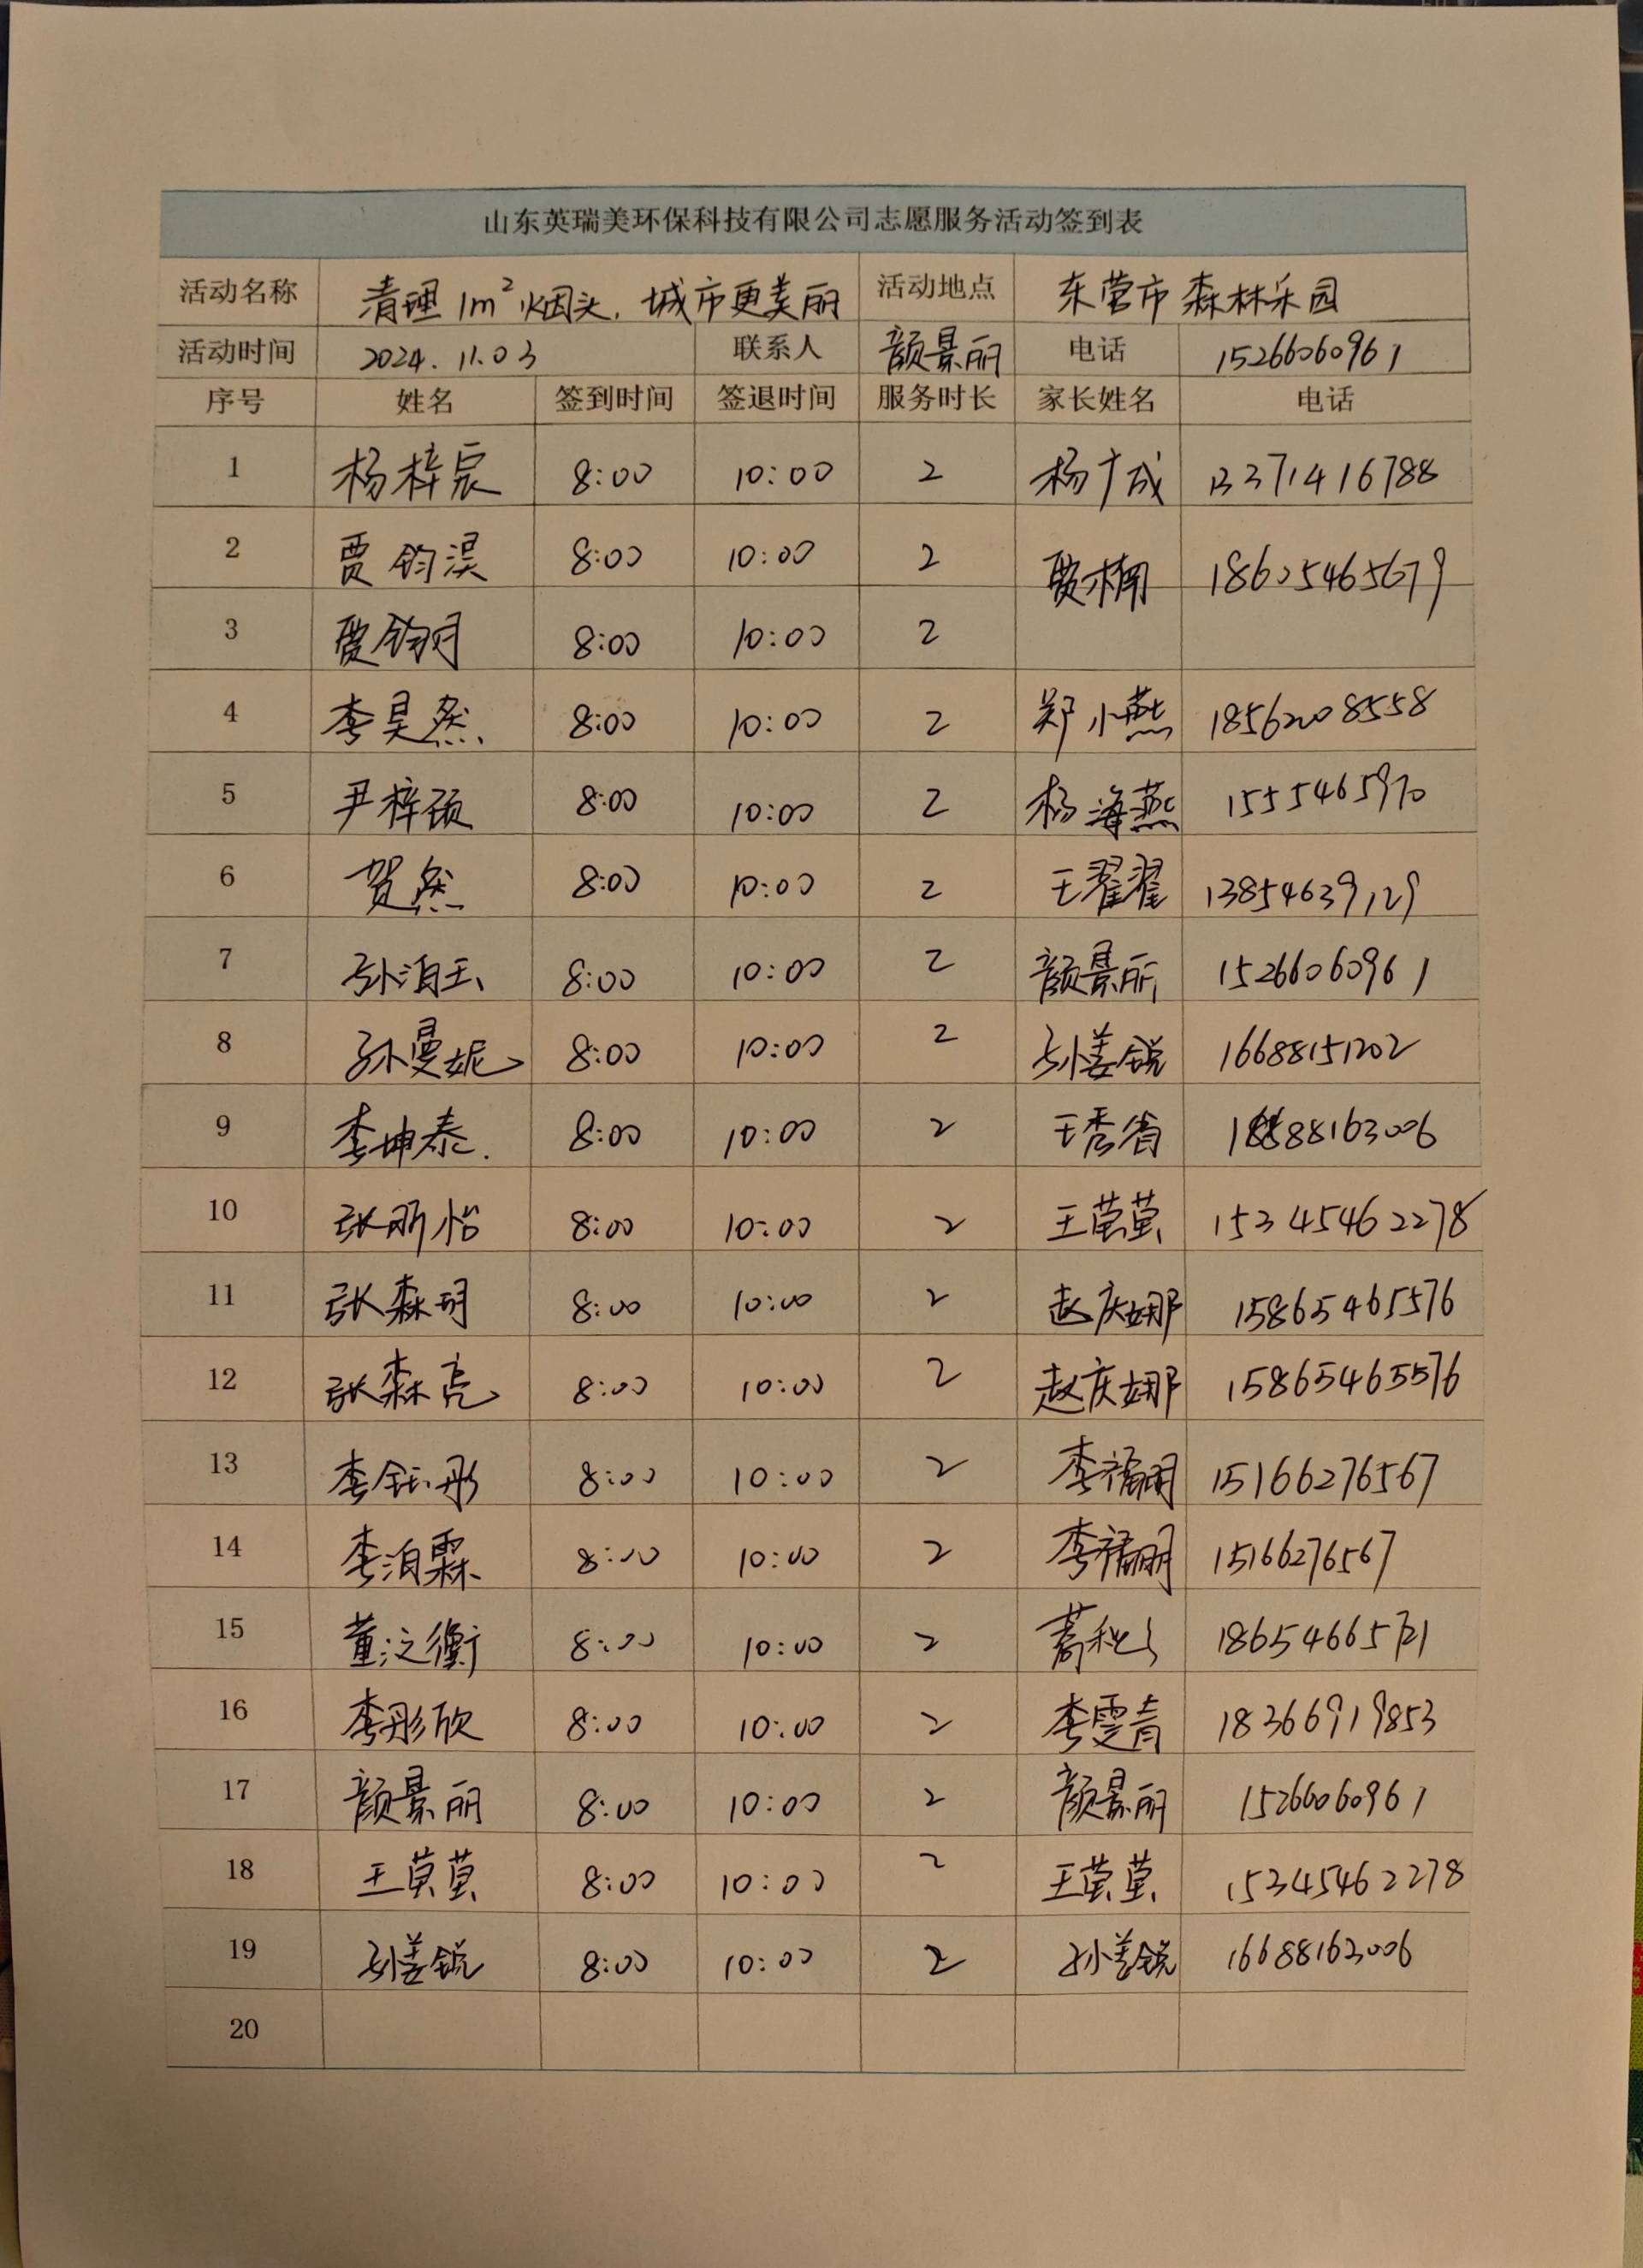 山东英瑞美环保科技有限公司志愿服务活动签到表
活动名称 清理1m²烟头,城市更美丽 活动地点 东营市森林乐园
活动时间 2024.11.03 联系人 颜景丽 电话 15266060961
序号 姓名 签到时间 签退时间 服务时长 家长姓名 电话
1 杨梓宸 8:00 10:00 2 杨广成 13371416788
2 贾钧淏 8:00 10:00 2 贾楠 18605465679
3 贾钧玥 8:00 10:00 2
4 李昊然 8:00 10:00 2 郑小燕 18562008558
5 尹梓硕 8:00 10:00 2 杨海燕 1555465970
6 贺然 8:00 10:00 2 王翟翟 13854639129
7 孙洎玉 8:00 10:00 2 颜景丽 15266060961
8 孙曼妮 8:00 10:00 2 孙姜锐 16688151202
9 李坤泰 8:00 10:00 2 王秀省 16688163006
10 张昕怡 8:00 10:00 2 王莹莹 15345462278
11 张森玥 8:00 10:00 2 赵庆娜 15865465576
12 张森亮 8:00 10:00 2 赵庆娜 15865465576
13 李钰彤 8:00 10:00 2 李福朋 15166276567
14 李洎霖 8:00 10:00 2 李福朋 15166276567
15 董泛衡 8:00 10:00 2 18654665721
16 李彤欣 8:00 10:00 2 李雯青 18366919853
17 颜景丽 8:00 10:00 2 颜景丽 15266060961
18 王莹莹 8:00 10:00 2 王莹莹 15345462278
19 孙姜锐 8:00 10:00 2 孙姜锐 16688163006
20